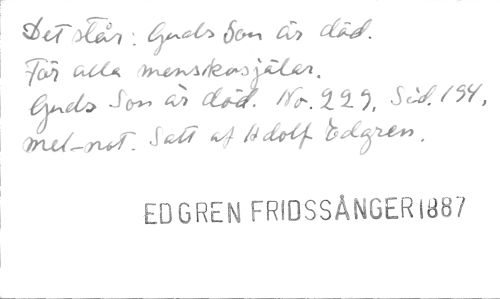 Det står: Guds Son är död.
För alla menskosjälar.
Guds Son är död. No. 229, Sid. 194,
mel-not. Satt af Adolf Edgren.
EDGREN FRIDSSÅNGER 1887